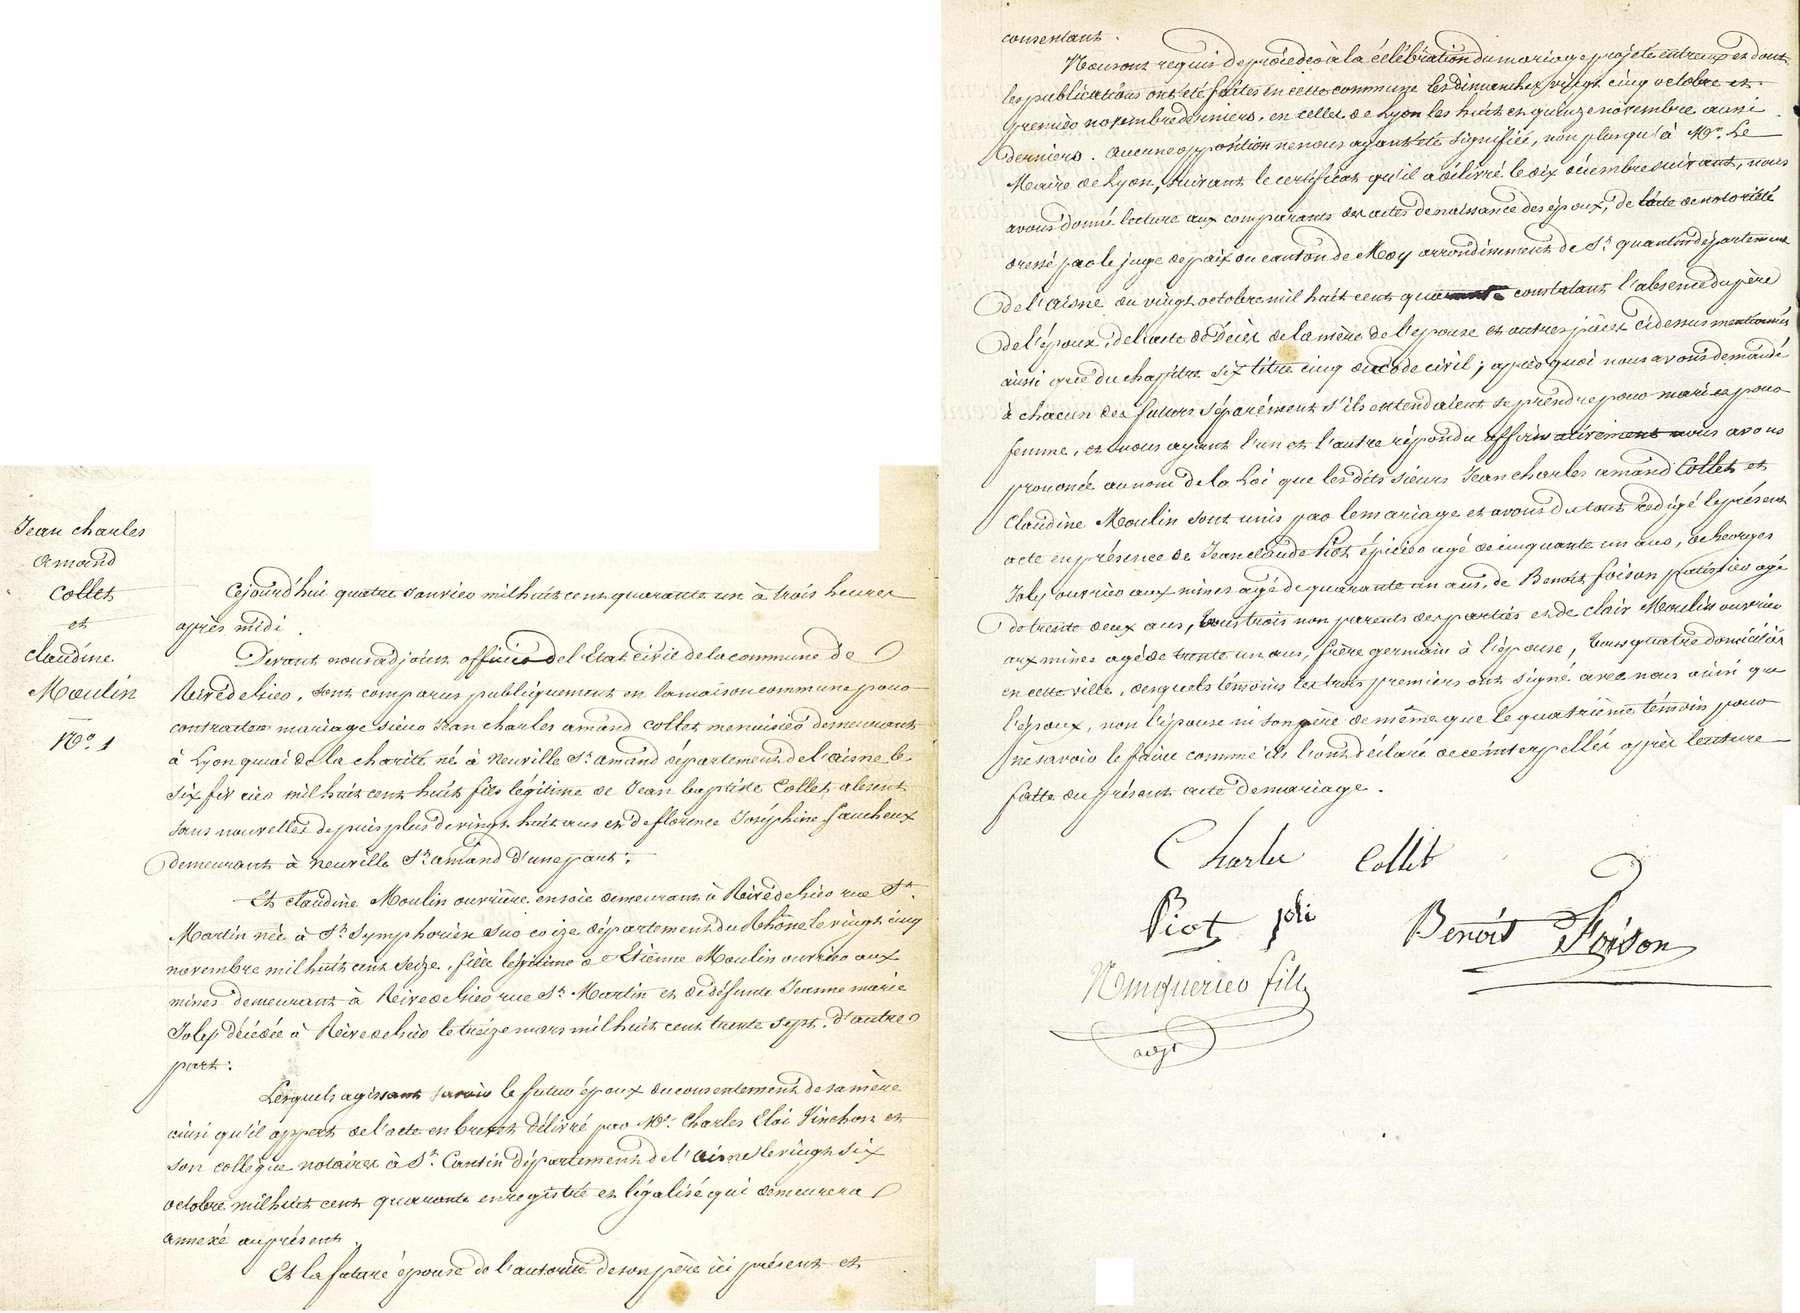 Jean charles
amand
Collet
et
claudine
Moulin
No. 1
Cejourd'hui quatre Janvier mil huit cent quarante un à trois heures
après midi.
Devant nous adjoint officier de l'Etat civil de la commune de
Rivedegier, sont comparus publiquement en la maison commune pour
contracter mariage sieur Jean charles amand Collet menuisier demeurant
à Lyon quai de la charité né à neuville St. amand département de l'aisne le
six février mil huit cent huit fils légitime de Jean baptiste Collet absent
sans nouvelles depuis plus de vingt huit ans et de florence Joséphine faucheux
demeurant à neuville St. amand d'une part;
Et claudine Moulin ouvrière en soie demeurant à Rivedegier rue St.
Martin née à St. Symphorien sur coize département du Rhône le vingt cinq
novembre mil huit cent seize, fille légitime de Etienne Moulin ouvrier aux
mines demeurant à Rivedegier rue St. Martin et de défunte Jeanne marie
Joly décédée à Rivedegier le treize mars mil huit cent trente sept. d'autre
part:
Lesquels agissant savoir le futur époux du consentement de sa mère
ainsi qu'il appert de l'acte en brevet délivré par Me. Charles Eloi et
son collègue notaires à St. Cantin département de l'aisne le vingt six
octobre mil huit cent quarante enregistré et légalisé qui demeurera
annexé au présent.
Et la future épouse de l'autorité de son père ici présent et
consentant.
Nous ont requis de procéder à la célébration du mariage projeté entreux et dont
les publications ont été faites en cette commune les dimanches vingt cinq octobre et
premier novembre derniers, en celle de Lyon les huit et quinze novembre aussi
derniers. aucune opposition ne nous ayant été signifiée, non plus qu'à Mr. Le
Maire de Lyon, suivant le certificat qu'il a délivré le dix décembre suivant, nous
avons donné lecture aux comparants des actes de naissance des époux, de l'acte de notoriété
dressé par le juge de paix du canton de Moy arrondissement de St. quantin département
de l'aisne du vingt octobre mil huit cent quarante constatant l'absence du père
de l'époux, de l'acte de décès de la mère de l'épouse et autres pièces cidessus mentionnés
ainsi que du chapitre six titre cinq du code civil; après quoi nous avons demandé
à chacun des futurs séparément s'ils entendaient se prendre pour mari et pour
femme, et nous ayant l'un et l'autre répondu affirmativement nous avons
prononcé au nom de la Loi que les dits sieurs Jean charles amand Collet et
Claudine Moulin sont unis par le mariage et avons du tout rédigé le présent
acte en présence de Jean claude Piot épicier agé de cinquante un ans, de Georges
Joly ouvrier aux mines agé de quarante un ans, de Benoit foison patissier agé
de trente deux ans, tous trois non parents des parties et de clair Moulin ouvrier
aux mines agé de trente un ans, frère germain à l'épouse, tous quatre domiciliés
en cette ville, desquels témoins les trois premiers ont signé avec nous ainsi que
l'époux, non l'épouse ni son père de même que le quatrième témoin pour
ne savoir le faire comme ils l'ont déclaré de ce interpellés après lecture
faite du présent acte de mariage.
Charles Collet
Piot joli Benoît Foison
fils
adjt